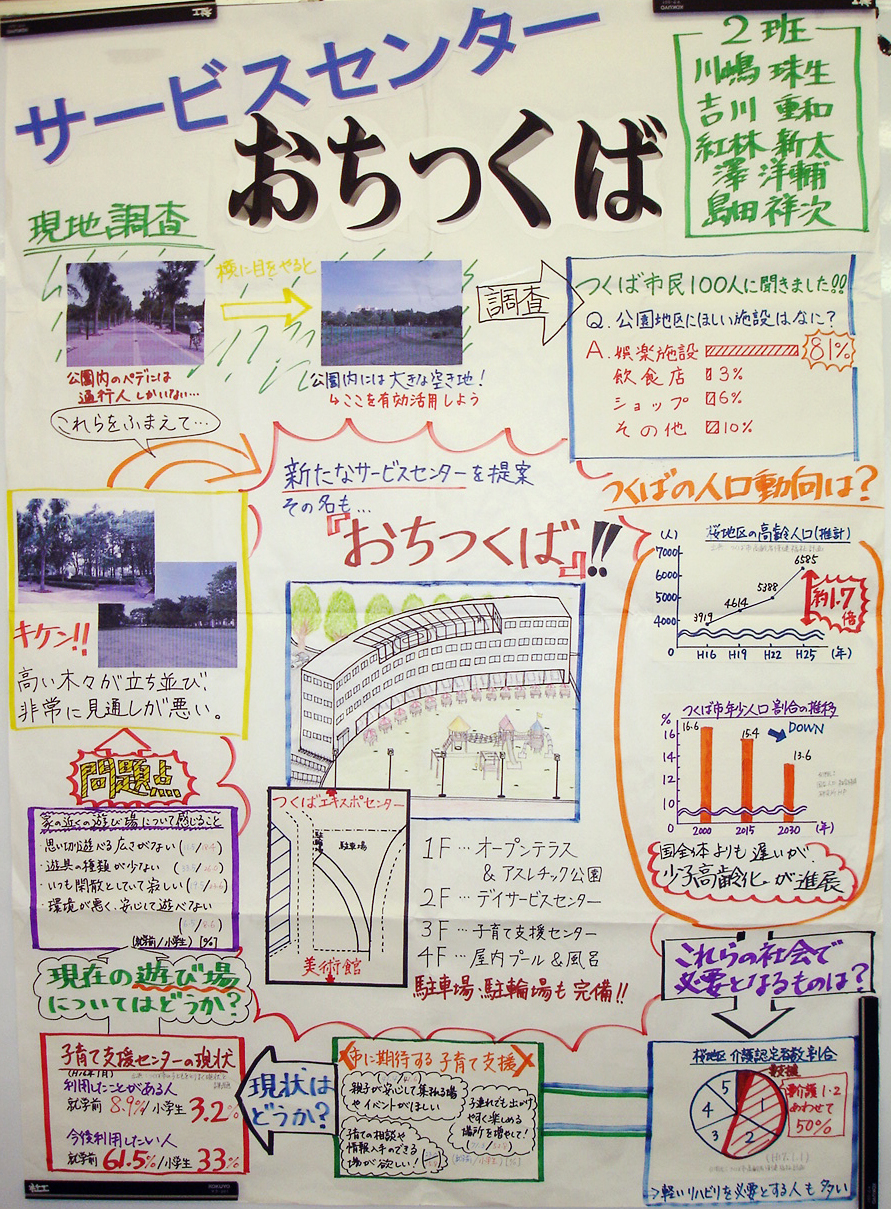 サービスセンター
おちつくば
2班
川嶋 珠生
吉川 重和
紅林 新太
澤 洋輔
島田 祥次
現地調査
横に目をやると
公園内のペデには
通行人しかいない…
公園内には大きな空き地！
↳ここを有効活用しよう
調査
つくば市民100人に聞きました!!
Q.公園地区にほしい施設はなに？
A.娯楽施設 81%
飲食店 3%
ショップ 6%
その他 10%
これらをふまえて…
新たなサービスセンターを提案
その名も…
『おちつくば』!!
キケン!!
高い木々が立ち並び
非常に見通しが悪い。
つくばの人口動向は？
桜地区の高齢人口(推計)
(人)
7000
6000
5000
4000
0
3919
4614
5388
6585
約1.7倍
H16 H19 H22 H25 (年)
つくば市年少人口割合の推移
%
16
14
12
10
8
0
16.6
15.4
13.6
DOWN
2000 2015 2030 (年)
国全体よりも遅いが、
少子高齢化が進展
問題点
家の近くの遊び場について感じること
・思い切り遊べる広さがない
・遊具の種類が少ない
・いつも閑散としていて寂しい
・環境が悪く、安心して遊べない
(就学前/小学生) [%]
つくばエキスポセンター
駐輪場
駐車場
美術館
1F…オープンテラス
&アスレチック公園
2F…デイサービスセンター
3F…子育て支援センター
4F…屋内プール&風呂
駐車場・駐輪場も完備!!
これらの社会で
必要となるものは？
現在の遊び場
についてはどうか？
子育て支援センターの現状
利用したことがある人
就学前 8.9%/小学生 3.2%
今後利用したい人
就学前 61.5%/小学生 33%
現状は
どうか？
市に期待する子育て支援
親子が安心して集まれる場
やイベントがほしい
子連れでも出かけ
やすく楽しめる
場所を増やして！
子育ての相談や
情報入手のできる
場が欲しい！
(就学前/小学生) [%]
桜地区 介護認定者数割合
要支援
1
2
3
4
5
要介護1・2
あわせて
50%
→軽いリハビリを必要とする人も多い